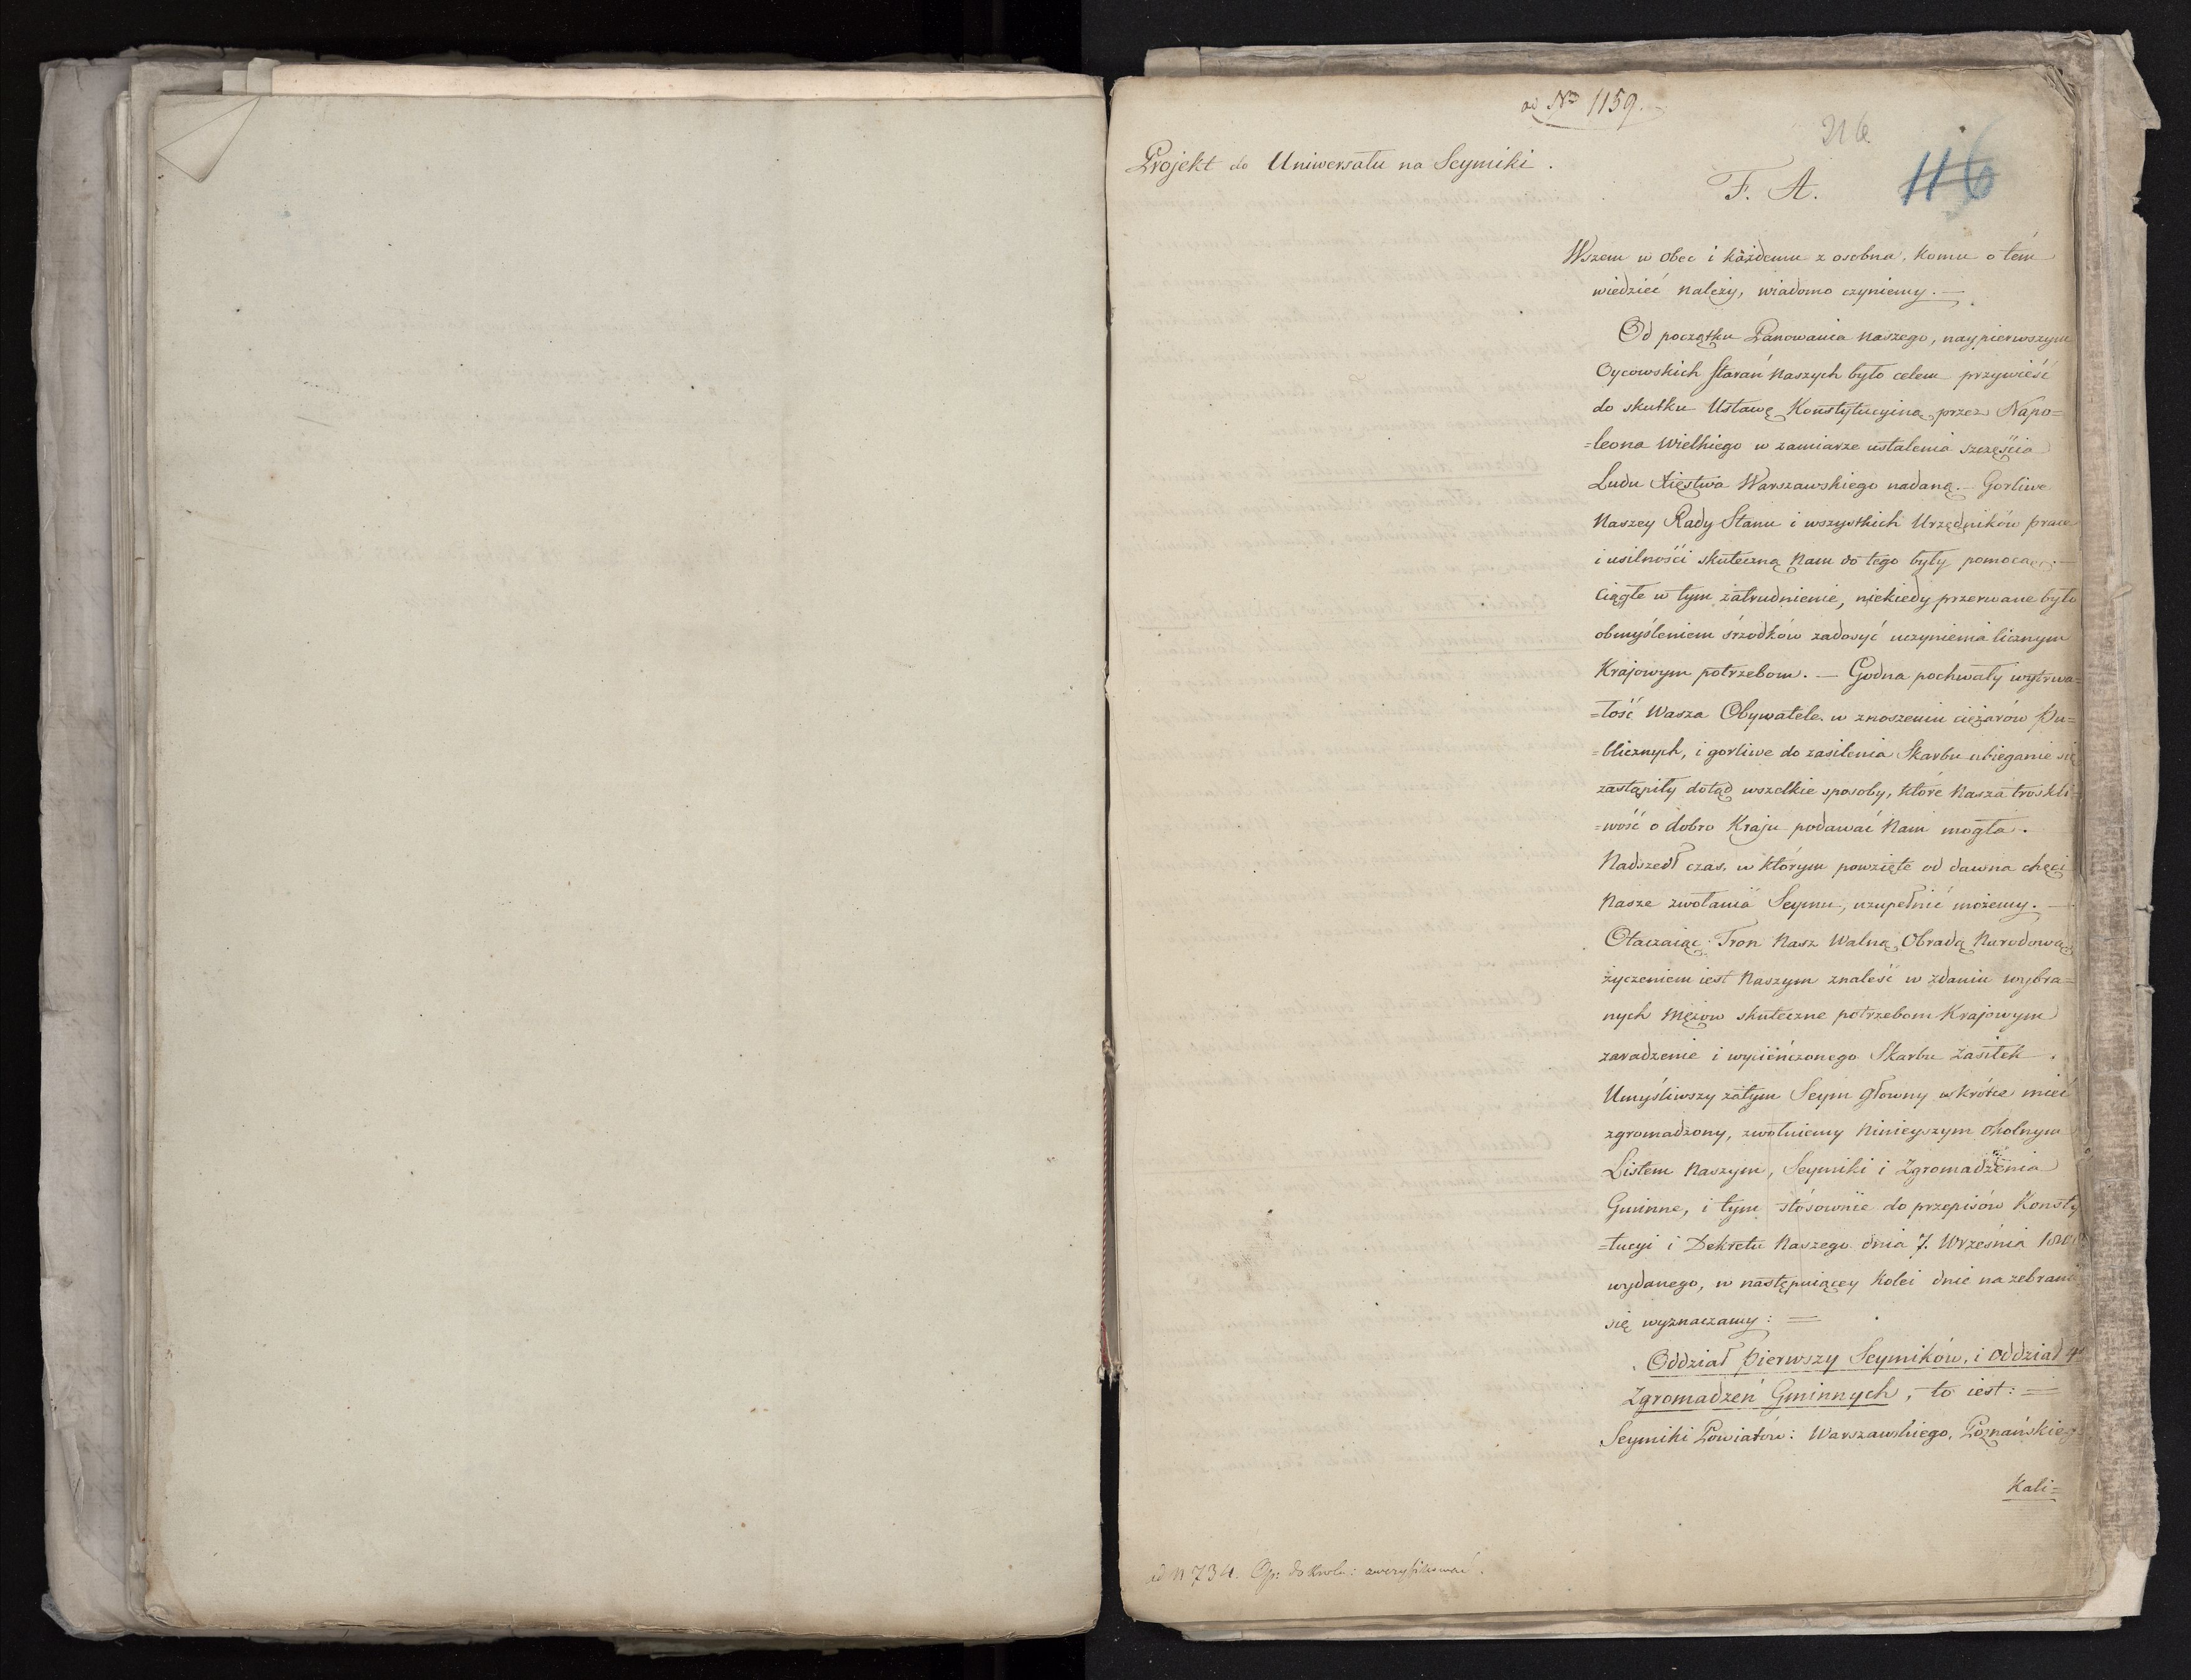 ad Nro 1159.
216
116
Projekt do Uniwersału na Seymiki.
F. A.
Wszem w obec i każdemu z osobna, komu o tém
wiedzieć należy, wiadomo czyniemy. —
Od początku Panowania Naszego, naypierwszym
Oycowskich starań Naszych było celem przywieść
do skutku Ustawę Konstytucyiną przez Napo=
=leona Wielkiego w zamiarze ustalenia szczęścia
Ludu Xięstwa Warszawskiego nadaną. — Gorliwe
Naszey Rady Stanu i wszystkich Urzędników prace
i usilności skuteczną Nam do tego były pomocą. —
Ciągłe w tym zatrudnienie, niekiedy przerwane było
obmyśleniem śrzodków zadosyć uczynienia licznym
Krajowym potrzebom. — Godna pochwały wytrwa=
=łość Wasza Obywatele w znoszeniu ciężarów Pu=
=blicznych, i gorliwe do zasilenia Skarbu ubieganie się
zastąpiły dotąd wszelkie sposoby, które Nasza troskli=
=wość o dobro Kraju podawać Nam mogła.
Nadszedł czas, w którym powzięte od dawna chęci
Nasze zwołania Seymu, uzupełnić możemy. —
Otaczaiąc Tron Nasz Walną Obradą Narodową
życzeniem iest Naszym znaleść w zdaniu wybra=
nych Mężów skuteczne potrzebom Krajowym
zaradzenie i wycieńczonego Skarbu zasiłek.
Umyśliwszy zatym Seym główny wkrótce mieć
zgromadzony, zwołuiemy Ninieyszym okolnym
Listem Naszym, Seymiki i Zgromadzenia
Gminne, i tym stósownie do przepisów Konsty
=tucyi i Dekretu Naszego dnia 7. Września
wydanego, w następuiącey kolei dnie na zebrania
się wyznaczamy: =
Oddział Pierwszy Seymików, i Oddział
Zgromadzeń Gminnych, to iest: =
Seymiki Powiatów: Warszawskiego, Poznańskiego
Kali=
ad N 734. Op: do Krola: zweryfikować.